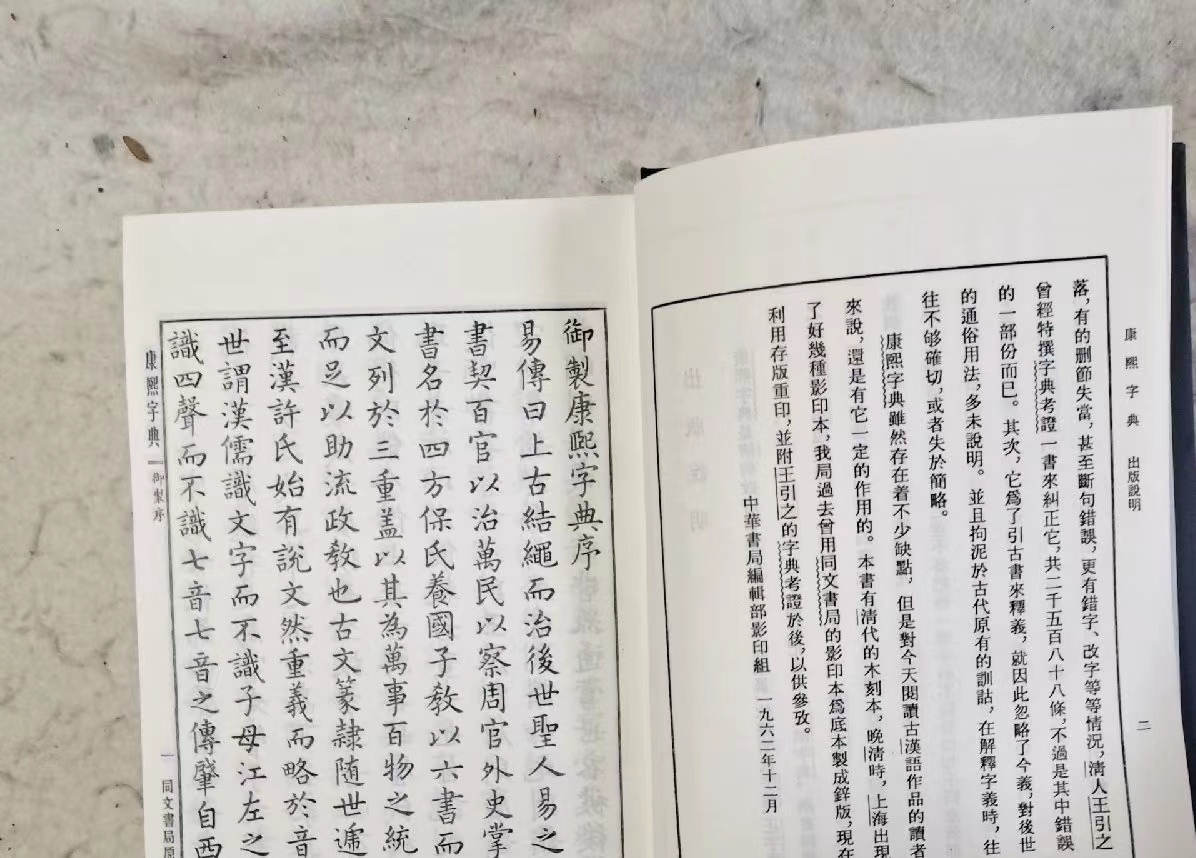 康熙字典　出版說明
二
落，有的删節失當，甚至斷句錯誤，更有錯字、改字等等情況，清人王引之
曾經特撰字典考證一書來糾正它，共二千五百八十八條，不過是其中錯誤
的一部份而已。其次，它爲了引古書來釋義，就因此忽略了今義，對後世
的通俗用法，多未說明。並且拘泥於古代原有的訓詁，在解釋字義時，往
往不够確切，或者失於簡略。
康熙字典雖然存在着不少缺點，但是對今天閱讀古漢語作品的讀者
來說，還是有它一定的作用的。本書有清代的木刻本，晚清時，上海出現
了好幾種影印本，我局過去曾用同文書局的影印本爲底本製成鋅版，現在
利用存版重印，並附王引之的字典考證於後，以供參攷。
中華書局編輯部影印組　一九六二年十二月
御製康熙字典序
易傳曰上古結繩而治後世聖人易之
書契百官以治萬民以察周官外史掌
書名於四方保氏養國子敎以六書而
文列於三重蓋以其為萬事百物之統
而足以助流政敎也古文篆隸隨世遞
至漢許氏始有說文然重義而略於音
世謂漢儒識文字而不識子母江左之
識四聲而不識七音七音之傳肇自西
康熙字典　御製序
一
同文書局原